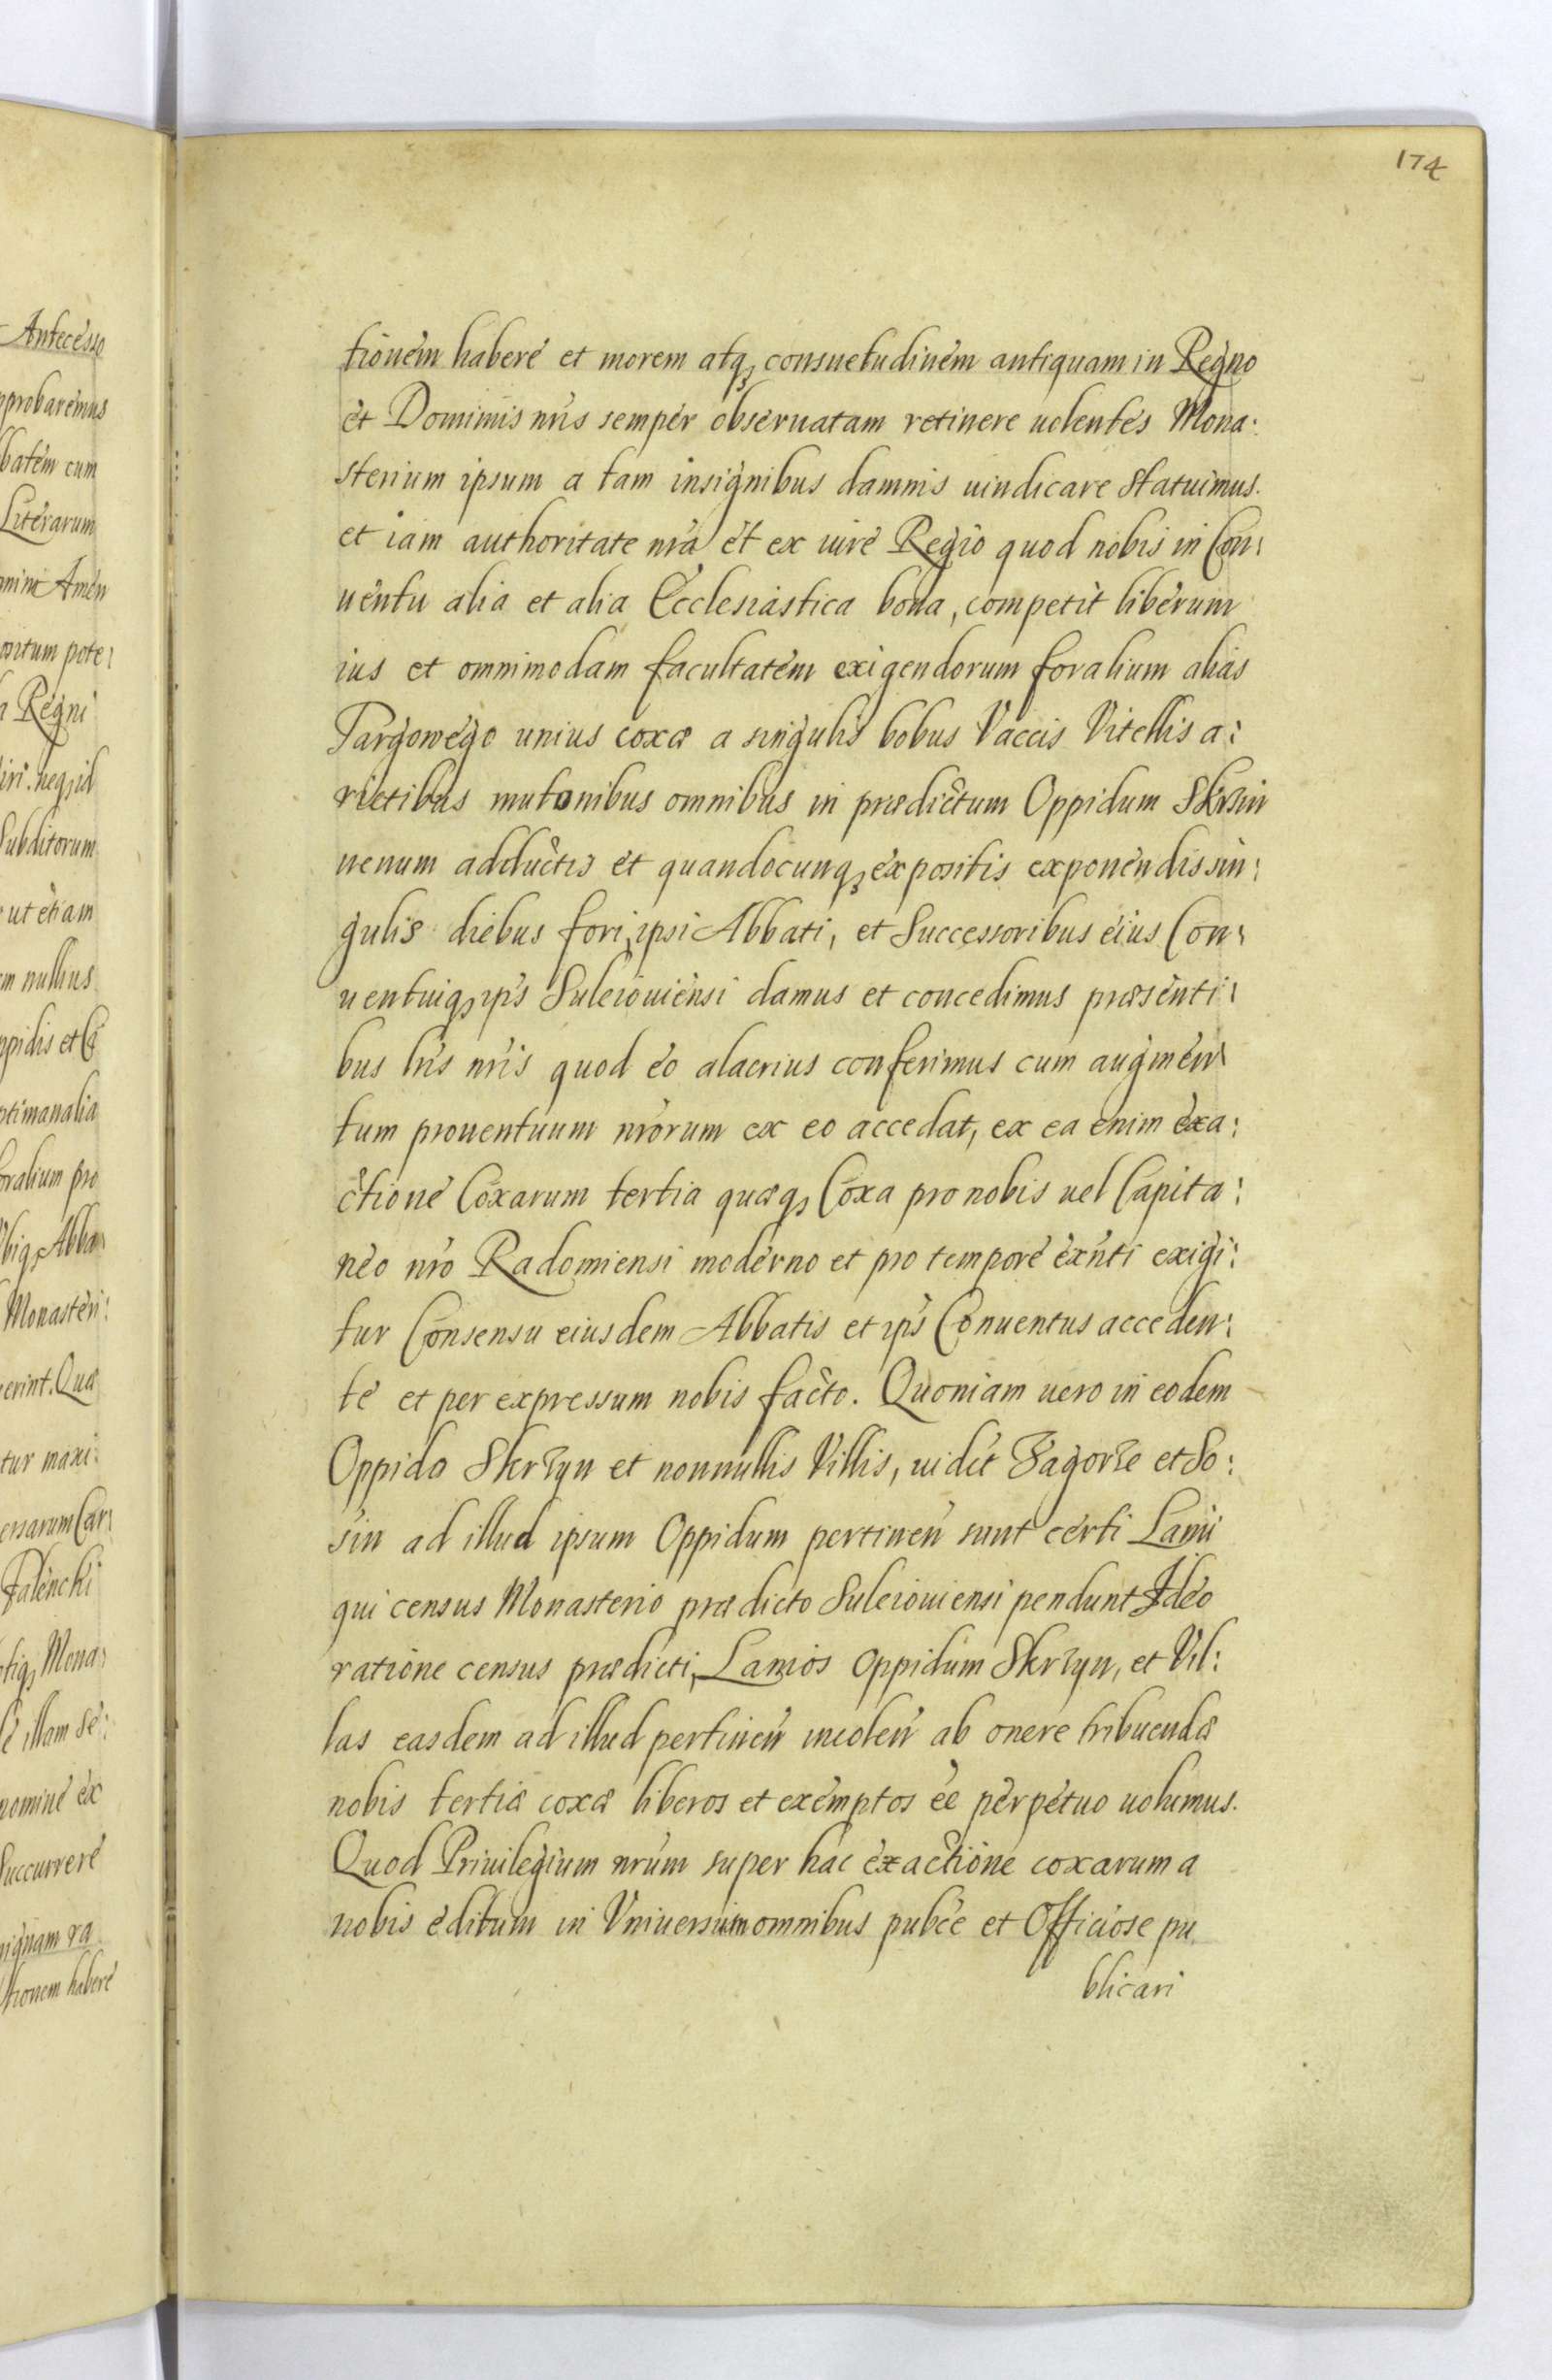 174
tionem habere et morem atq, consuetudinem antiquam in Regno
et Dominiis nris semper obseruatam retinere uolentes Mona:
sterium ipsum a tam insignibus damnis uindicare statuimus.
et iam authoritate nra et ex iure Regio quod nobis in Con:
uentu alia et alia Ecclesiastica bona, competit liberum
ius et omnimodam facultatem exigendorum foralium alias
Targowego unius coxæ a singulis bobus Vaccis Vitellis a:
rietibus mutonibus omnibus in prædictum Oppidum Skrzin
uenum adductis et quandocunq, expositis exponendis sin:
gulis diebus fori, ipsi Abbati, et Successoribus eius Con:
uentuiq, ips Suleiouiensi damus et concedimus præsenti:
bus lris nris quod eo alacrius conferimus cum augmen:
tum prouentuum nrorum ex eo accedat, ex ea enim exa:
ctione Coxarum tertia quæq, Coxa pro nobis uel Capita:
neo nro Radomiensi moderno et pro tempore exnti exigi:
tur Consensu eiusdem Abbatis et ips Conuentus acceden:
te et per expressum nobis facto. Quoniam uero in eodem
Oppido Skrzyn et nonnullis Villis, uidet Zagorze et So:
sin ad illud ipsum Oppidum pertinen sunt certi Lanii
qui census Monasterio prædicto Suleiouiensi pendunt Ideo
ratione census prædicti, Lanios Oppidum Skrzyn, et Vil:
las easdem ad illud pertinen incolen ab onere tribuendæ
nobis tertiæ coxæ liberos et exemptos ee perpetuo uolumus.
Quod Priuilegium nrum super hac exactione coxarum a
nobis editum in Vniuersum omnibus pubce et Officiose pu
blicari
Antecesso
probaremus
batem cum
Literarum
Amen
pote:
Regni
Subditorum
ut etiam
nullius
ptimanalia
foralium pro
Abba
Monasteri:
erint. Quæ
tur maxi:
ersarum Car:
Falencki
Mona:
illam se:
nomine ex
Succurrere
ra
tionem habere